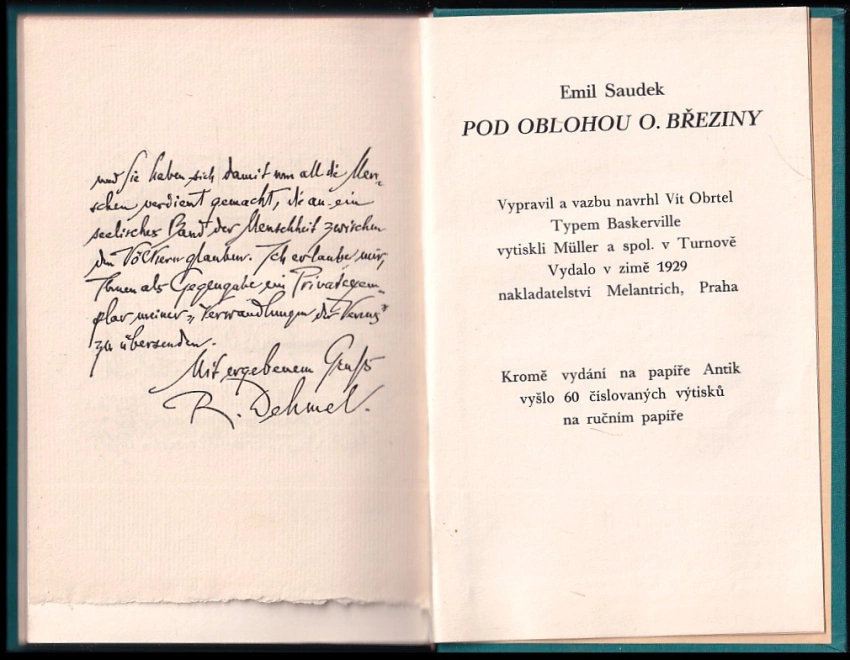 und Sie haben sich damit um all die Men-
schen verdient gemacht, die an ein
seelisches Band der Menschheit zwischen
den Völkern glauben. Ich erlaube mir,
Ihnen als Gegengabe ein Privatexem-
plar meiner „Verwandlungen der Venus"
zu übersenden.
Mit ergebenem Gruß
R. Dehmel.
Emil Saudek
POD OBLOHOU O. BŘEZINY
Vypravil a vazbu navrhl Vít Obrtel
Typem Baskerville
vytiskli Müller a spol. v Turnově
Vydalo v zimě 1929
nakladatelství Melantrich, Praha
Kromě vydání na papíře Antik
vyšlo 60 číslovaných výtisků
na ručním papíře